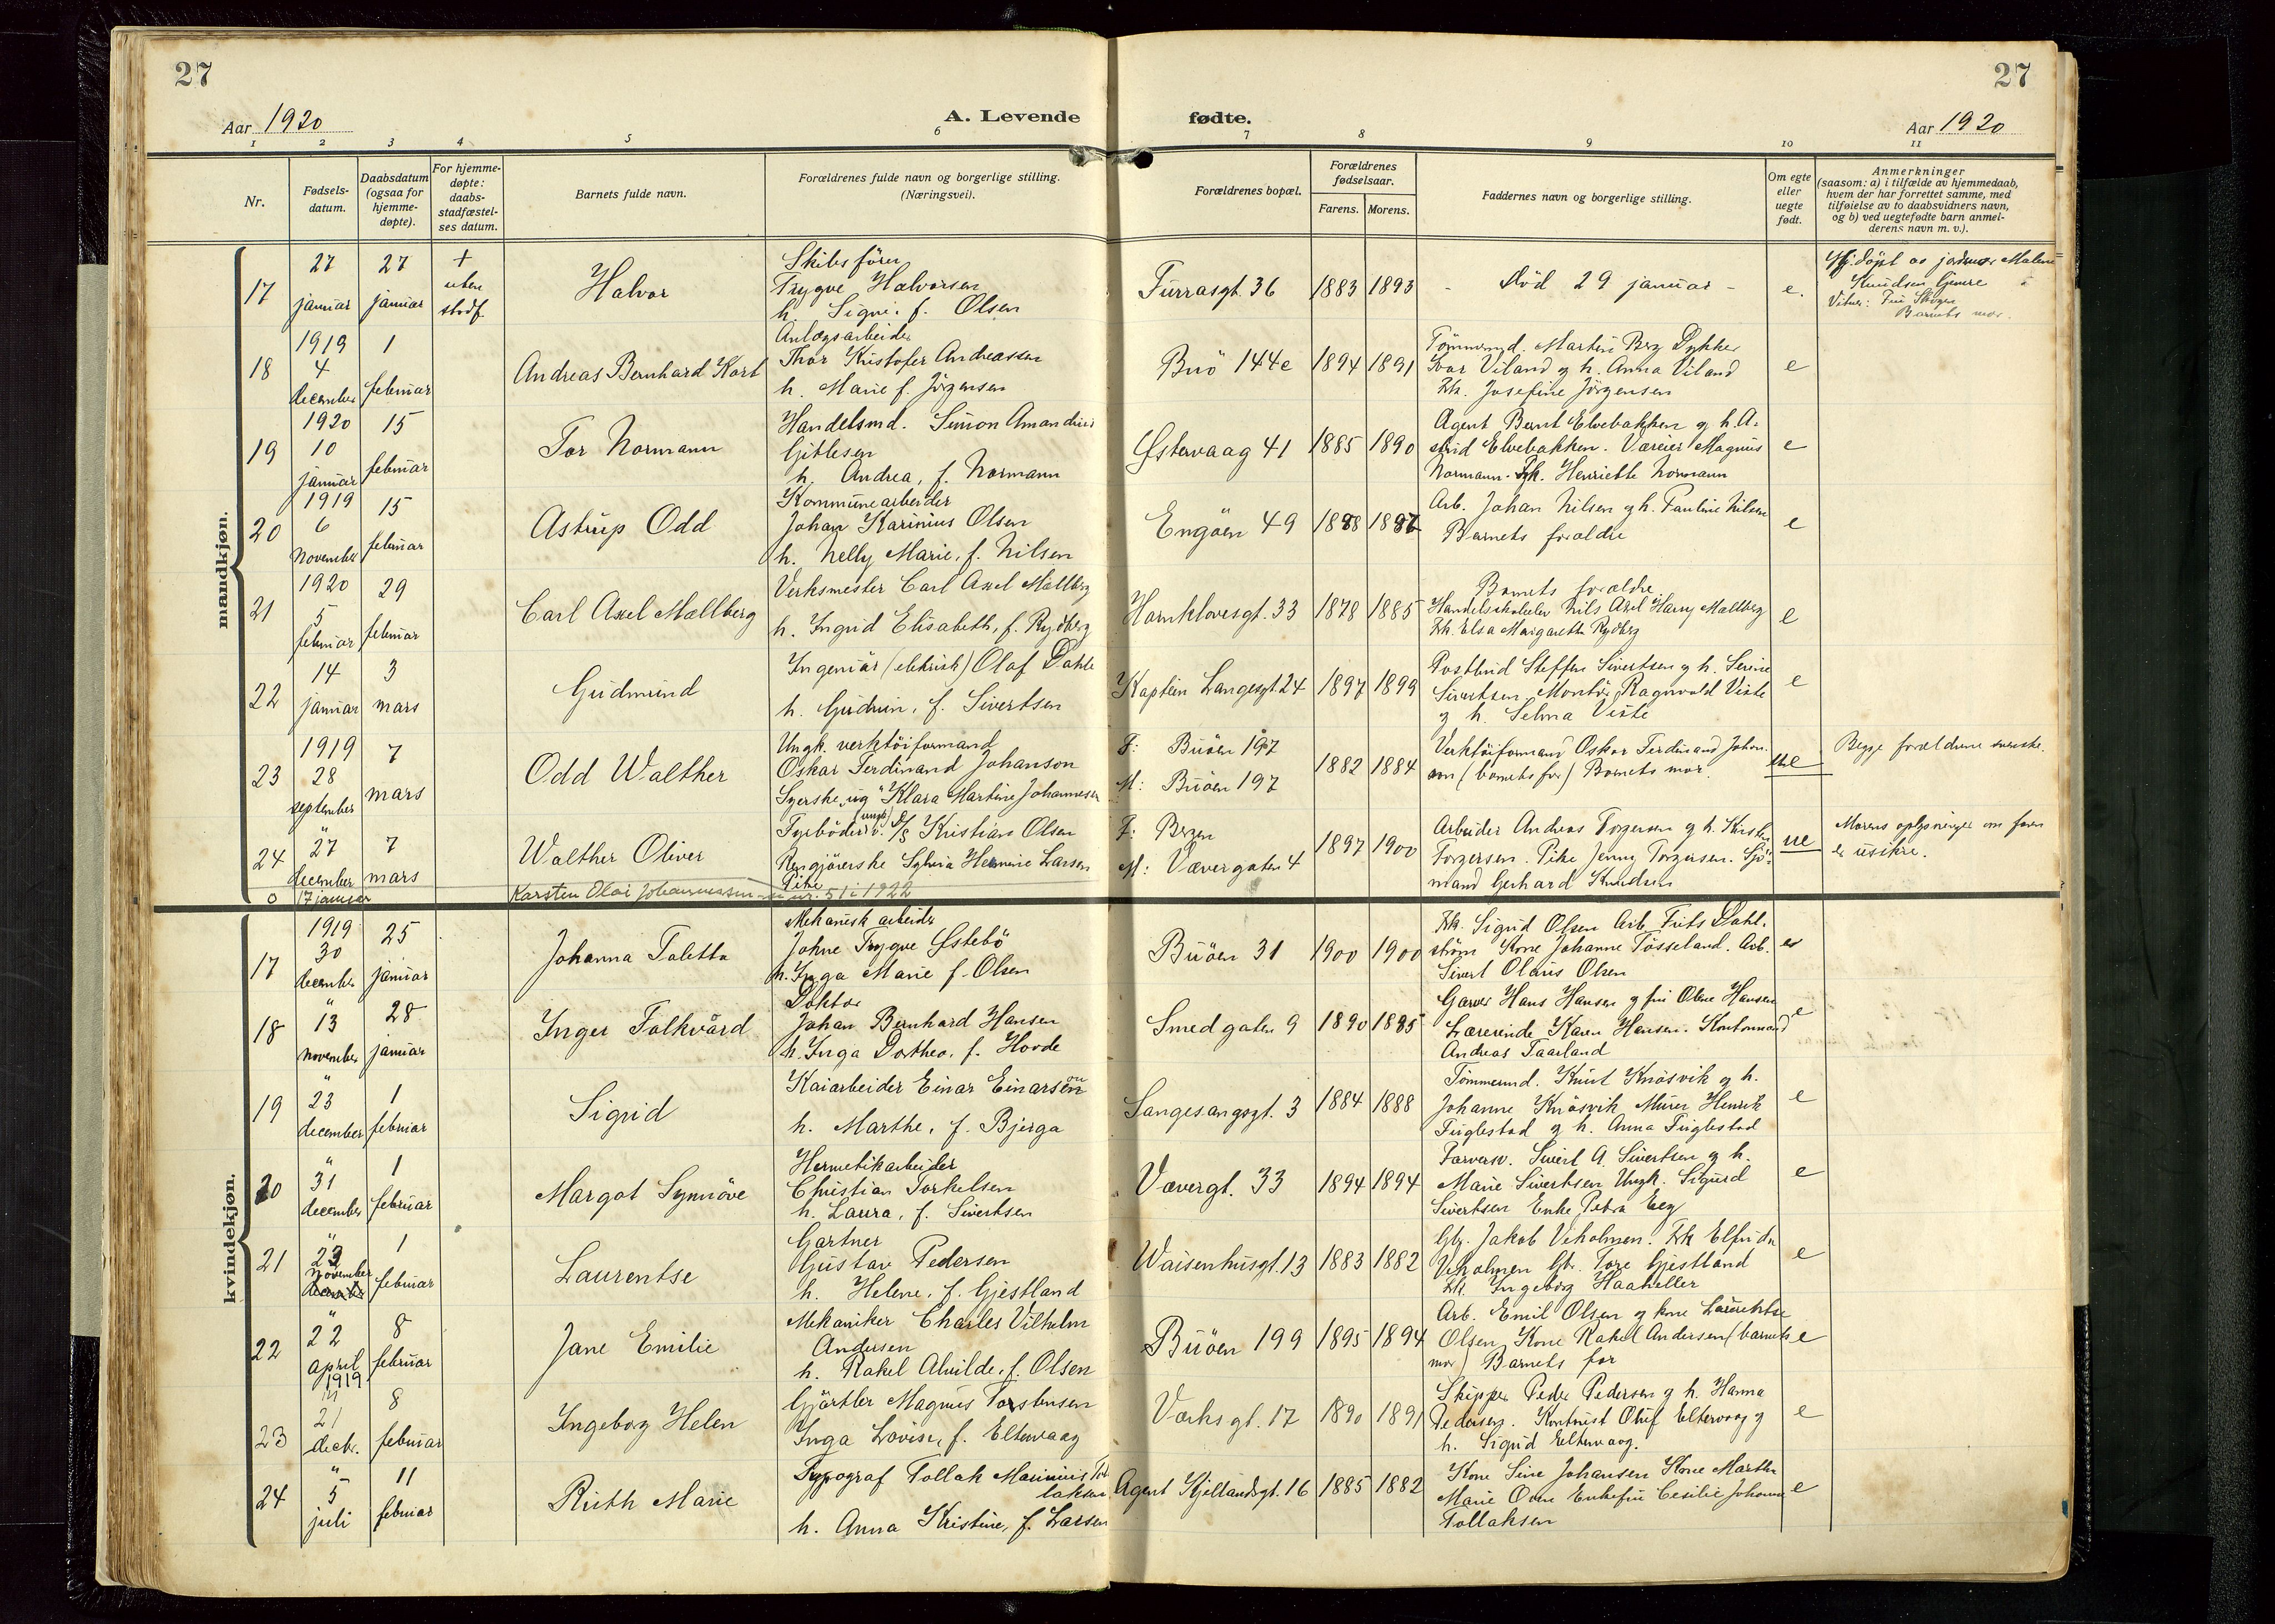 27
27
Aar 1920
A. Levende
fødte.
Aar 1920
1 2 3 4 5 6 7 8 9 10 11
Nr.
Fødsels-
datum.
Daabsdatum
(ogsaa for
hjemme-
døpte).
For hjemme-
døpte:
daabs-
stadfæstel-
ses datum.
Barnets fulde navn.
Forældrenes fulde navn og borgerlige stilling.
(Næringsvei).
Forældrenes bopæl.
Forældrenes
fødselsaar.
Farens. Morens.
Faddernes navn og borgerlige stilling.
Om egte
eller
uegte
født.
Anmerkninger
(saasom: a) i tilfælde av hjemmedaab,
hvem der har forrettet samme, med
tilføielse av to daabsvidners navn,
og b) ved uegtefødte barn anmel-
derens navn m. v.).
mandkjøn.
17
27
januar
27
januar
+
uten
stadf.
Halvor
Skibsfører
Trygve Halvorsen
h. Signe f. Olsen
Turrasgt. 36
1883 1893
- Død 29 januar -
e.
Hj.døpt av jordmor Malene
Knudsen Gjemre
Vitner: Fru Skogen
Barnets mor.
18
1919
4
december
1
februar
Andreas Bernhard Kort
Anlægsarbeider
Thor Kristofer Andreassen
h. Marie f. Jörgensen
Buö 144e
1894 1891
Tömmermd. Martin Berg Dykker
Ivar Viland og h. Anna Viland
Frk. Josefine Jörgensen
e
19
1920
10
januar
15
februar
Tor Normann
Handelsmd. Simon Amandus
Gitlesen
h. Andrea, f. Normann
Østervaag 41
1885 1890
Agent Bernt Elvebakken og h. A-
strid Elvebakken. Væreier Magnus
Normann. Frk. Henriette Normann
e
20
1919
6
november
15
februar
Astrup Odd
Kommunearbeider
Johan Karinius Olsen
h. Nelly Marie, f. Nilsen
Engöen 49
1888 1887
Arb. Johan Nilsen og h. Pauline Nilsen
Barnets forældre
e
21
1920
5
februar
29
februar
Carl Axel Mallberg
Verksmester Carl Axel Mallberg
h. Ingrid Elisabeth, f. Rydberg
Harnklovesgt. 33
1878 1885
Barnets forældre
Handelsskoleelev Nils Axel Harry Mallberg
Frk. Elsa Margaretha Rydberg
e
22
14
januar
3
mars
Gudmund
Ingeniör (elektrisk) Olaf Dahle
h. Gudrun, f. Sivertsen
Kaptein Langesgt. 24
1897 1899
Postbud Steffen Sivertsen og h. Serine
Sivertsen, Montör Ragnvald Viste
og h. Selma Viste
e
23
1919
28
september
7
mars
Odd Walther
Ungk. verktöiformand
Oskar Ferdinand Johanson
Syerske, ug. Klara Martine Johannesen
F: Buöen 197
M: Buöen 197
1882 1884
Verktöiformand Oskar Ferdinand Johan-
son (barnets far) Barnets mor.
ue
Begge forældrene svenske.
24
"
27
december
7
mars
Walther Oliver
Fyrböder (ungk.) D/S Kristian Olsen
Rengjörerske Sylvia Hermine Larsen
Pike
F: Bergen
M: Vævergaten 4
1897 1900
Arbeider Andreas Torgersen og h. Kirsten
Torgersen. Pike Jenny Torgersen. Sjö-
mand Gerhard Knudsen
ue
Morens oplysninger om faren
er usikre.
0 17 januar Karsten Olai Johannessen nr. 51 i 1922
kvindekjøn.
17
1919
30
december
25
januar
Johanna Taletta
Mekanisk arbeider
Johne Trygve Østebö
h. Inga Marie f. Olsen
Buöen 31
1900 1900
Frk. Sigrid Olsen Arb. Frits Dahl-
ström Kone Johanne Tösseland. Arb.
Sivert Olaus Olsen
e
18
"
13
november
28
januar
Inger Falkvård
Doktor
Johan Bernhard Hansen
h. Inga Dorthea, f. Hovde
Smedgaten 9
1890 1885
Garver Hans Hansen og fru Oline Hansen
Lærerinde Karen Hansen. Kontormand
Andreas Taarland
e
19
"
23
december
1
februar
Sigrid
Kaiarbeider Einar Einarsen
h. Marthe, f. Bjerga
Langesangsgt. 3
1884 1888
Tömmermd. Knut Knösvik og h.
Johanne Knösvik Murer Henrik
Fuglestad og h. Anna Fuglestad
e
20
"
31
december
1
februar
Margot Synnöve
Hermetikarbeider
Christian Torkelsen
h. Laura, f. Sivertsen
Vævergt. 33
1894 1894
Farversv. Sivert A. Sivertsen og h.
Marie Sivertsen Ungk. Sigurd
Sivertsen Enke Petra Eeg
e
21
"
23
november
1
februar
Laurentse
Gartner
Gustav Pedersen
h. Helene, f. Gjestland
Waisenhusgt. 13
1883 1882
Gbr. Jakob Veholmen. Frk Elfrida
Veholmen Gbr. Tore Gjestland
Frk. Ingeborg Haaheller
e
22
"
22
april
1919
8
februar
Jane Emilie
Mekaniker Charles Vilhelm
Andersen
h. Rakel Alvilde, f. Olsen
Buöen 199
1895 1894
Arb. Emil Olsen og kone Laurentse
Olsen, Kone Rakel Andersen (barnets
mor) Barnets far
e
23
"
21
decbr.
8
februar
Ingeborg Helen
Gjörtler Magnus Torstensen
Inga Lovise, f. Eltervaag
Værksgt. 17
1890 1891
Skipper Peder Pedersen og h. Hanna
Pedersen. Kontorist Oluf Eltervaag og
h. Sigrid Eltervaag.
e
24
"
5
juli
11
februar
Ruth Marie
Typograf Tollak Marinius Tol-
laksen
h. Anna Kristine, f. Larsen
Agent Kjellandsgt. 16
1885 1882
Kone Sine Johansen Kone Marthe
Marie Enkefru Cesilie Johanne
Tollaksen
e